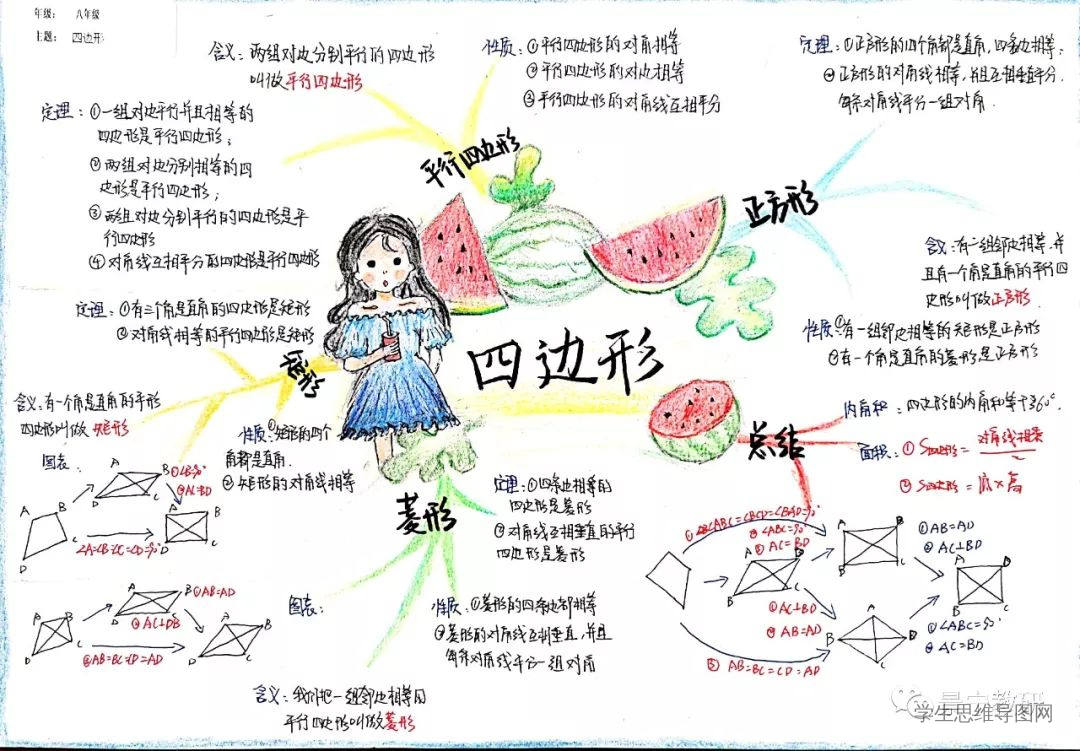 年级： 八年级
主题： 四边形
四边形
平行四边形
含义：两组对边分别平行的四边形
叫做平行四边形
性质：①平行四边形的对角相等
②平行四边形的对边相等
③平行四边形的对角线互相平分
定理：①一组对边平行并且相等的
四边形是平行四边形；
②两组对边分别相等的四
边形是平行四边形；
③两组对边分别平行的四边形是平
行四边形
④对角线互相平分的四边形是平行四边形
正方形
定理：①正方形的四个角都是直角，四条边相等；
②正方形的对角线相等，并且互相垂直平分，
每条对角线平分一组对角．
含义：有一组邻边相等，并
且有一个角是直角的平行四
边形叫做正方形．
性质：①有一组邻边相等的矩形是正方形
②有一个角是直角的菱形是正方形
矩形
定理：①有三个角是直角的四边形是矩形
②对角线相等的平行四边形是矩形
含义：有一个角是直角的平形
四边形叫做矩形
性质：①矩形的四个
角都是直角．
②矩形的对角线相等
图表：
A
B
C
D
A
B
C
D
①∠B=90°
②AC=BD
∠A=∠B=∠C=∠D=90°
A
B
C
D
菱形
定理：①四条边相等的
四边形是菱形
②对角线互相垂直的平行
四边形是菱形
性质：①菱形的四条边都相等
②菱形的对角线互相垂直，并且
每条对角线平分一组对角
含义：我们把一组邻边相等的
平行四边形叫做菱形
图表：
A
B
C
D
A
B
C
D
①AB=AD
②AC⊥DB
③AB=BC=CD=AD
A
B
C
D
总结
内角和：四边形的内角和等于360°．
面积：①S四边形=对角线相乘/2
②S四边形=底×高
∠ABC=∠BCD=∠BAD=90°
①∠ABC=90°
②AC=BD
A
B
C
D
①AC⊥BD
②AB=AD
③AB=BC=CD=AD
A
B
C
①AB=AD
②AC⊥BD
A
B
C
D
①∠ABC=90°
②AC=BD
A
B
C
D
学生思维导图网